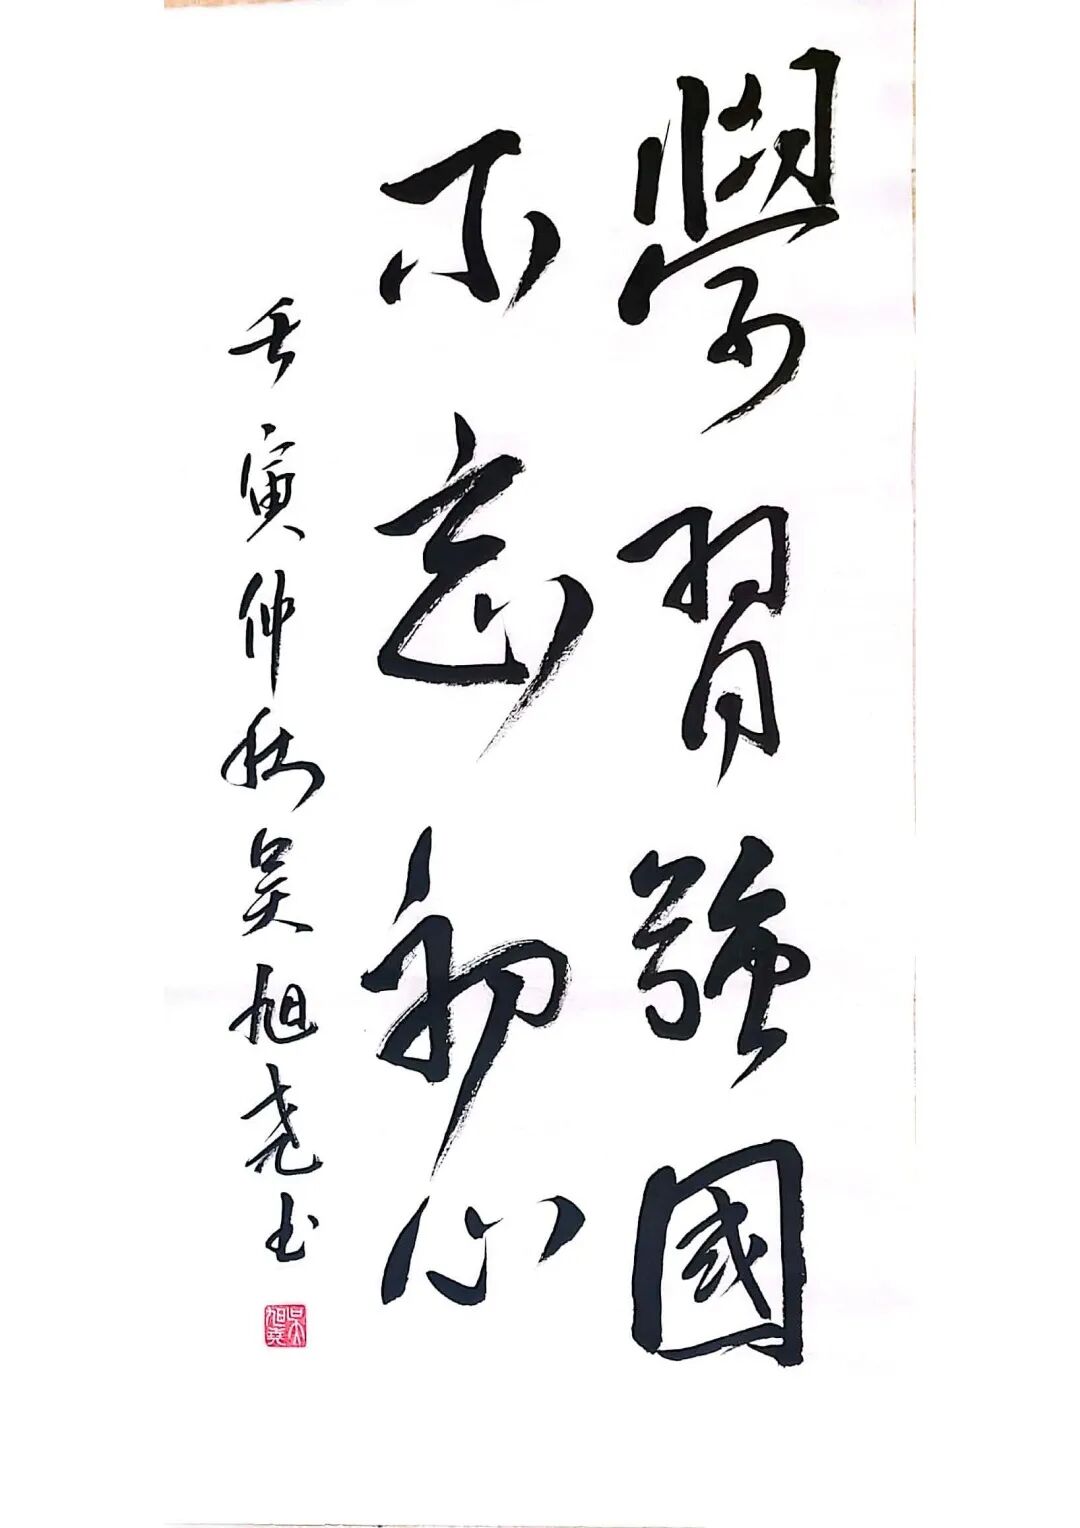 學習強國
不忘初心
壬寅仲秋吴旭尧书
吴旭尧